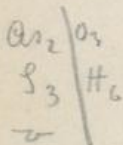 As₂ | O₃
S₃ | H₆